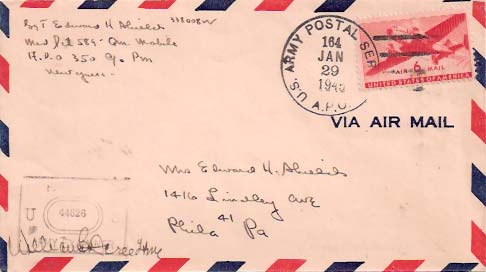 Sgt Edward H Shields
Med Det 589 - Qm. Mobile
A.P.O 350 % Pm
New York
U.S. ARMY POSTAL SER
164
JAN
29
A.P.O.
6
AIR MAIL
UNITED STATES OF AMERICA
VIA AIR MAIL
Mrs Edward H. Shields
1416 Lindley Ave
41
Phila Pa
U
44826